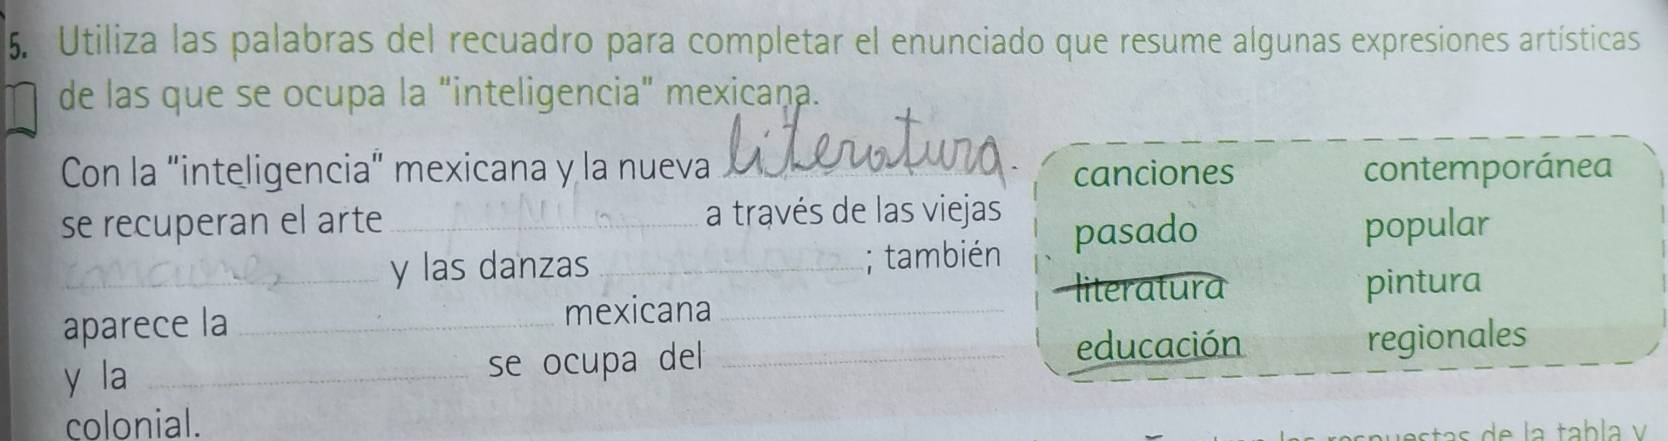 5. Utiliza las palabras del recuadro para completar el enunciado que resume algunas expresiones artísticas
de las que se ocupa la "inteligencia" mexicana.
Con la "inteligencia" mexicana y la nueva literatura.
se recuperan el arte a través de las viejas
canciones y las danzas ; también
aparece la mexicana
y la se ocupa del
colonial.
canciones contemporánea
pasado popular
literatura pintura
educación regionales
de la tabla y